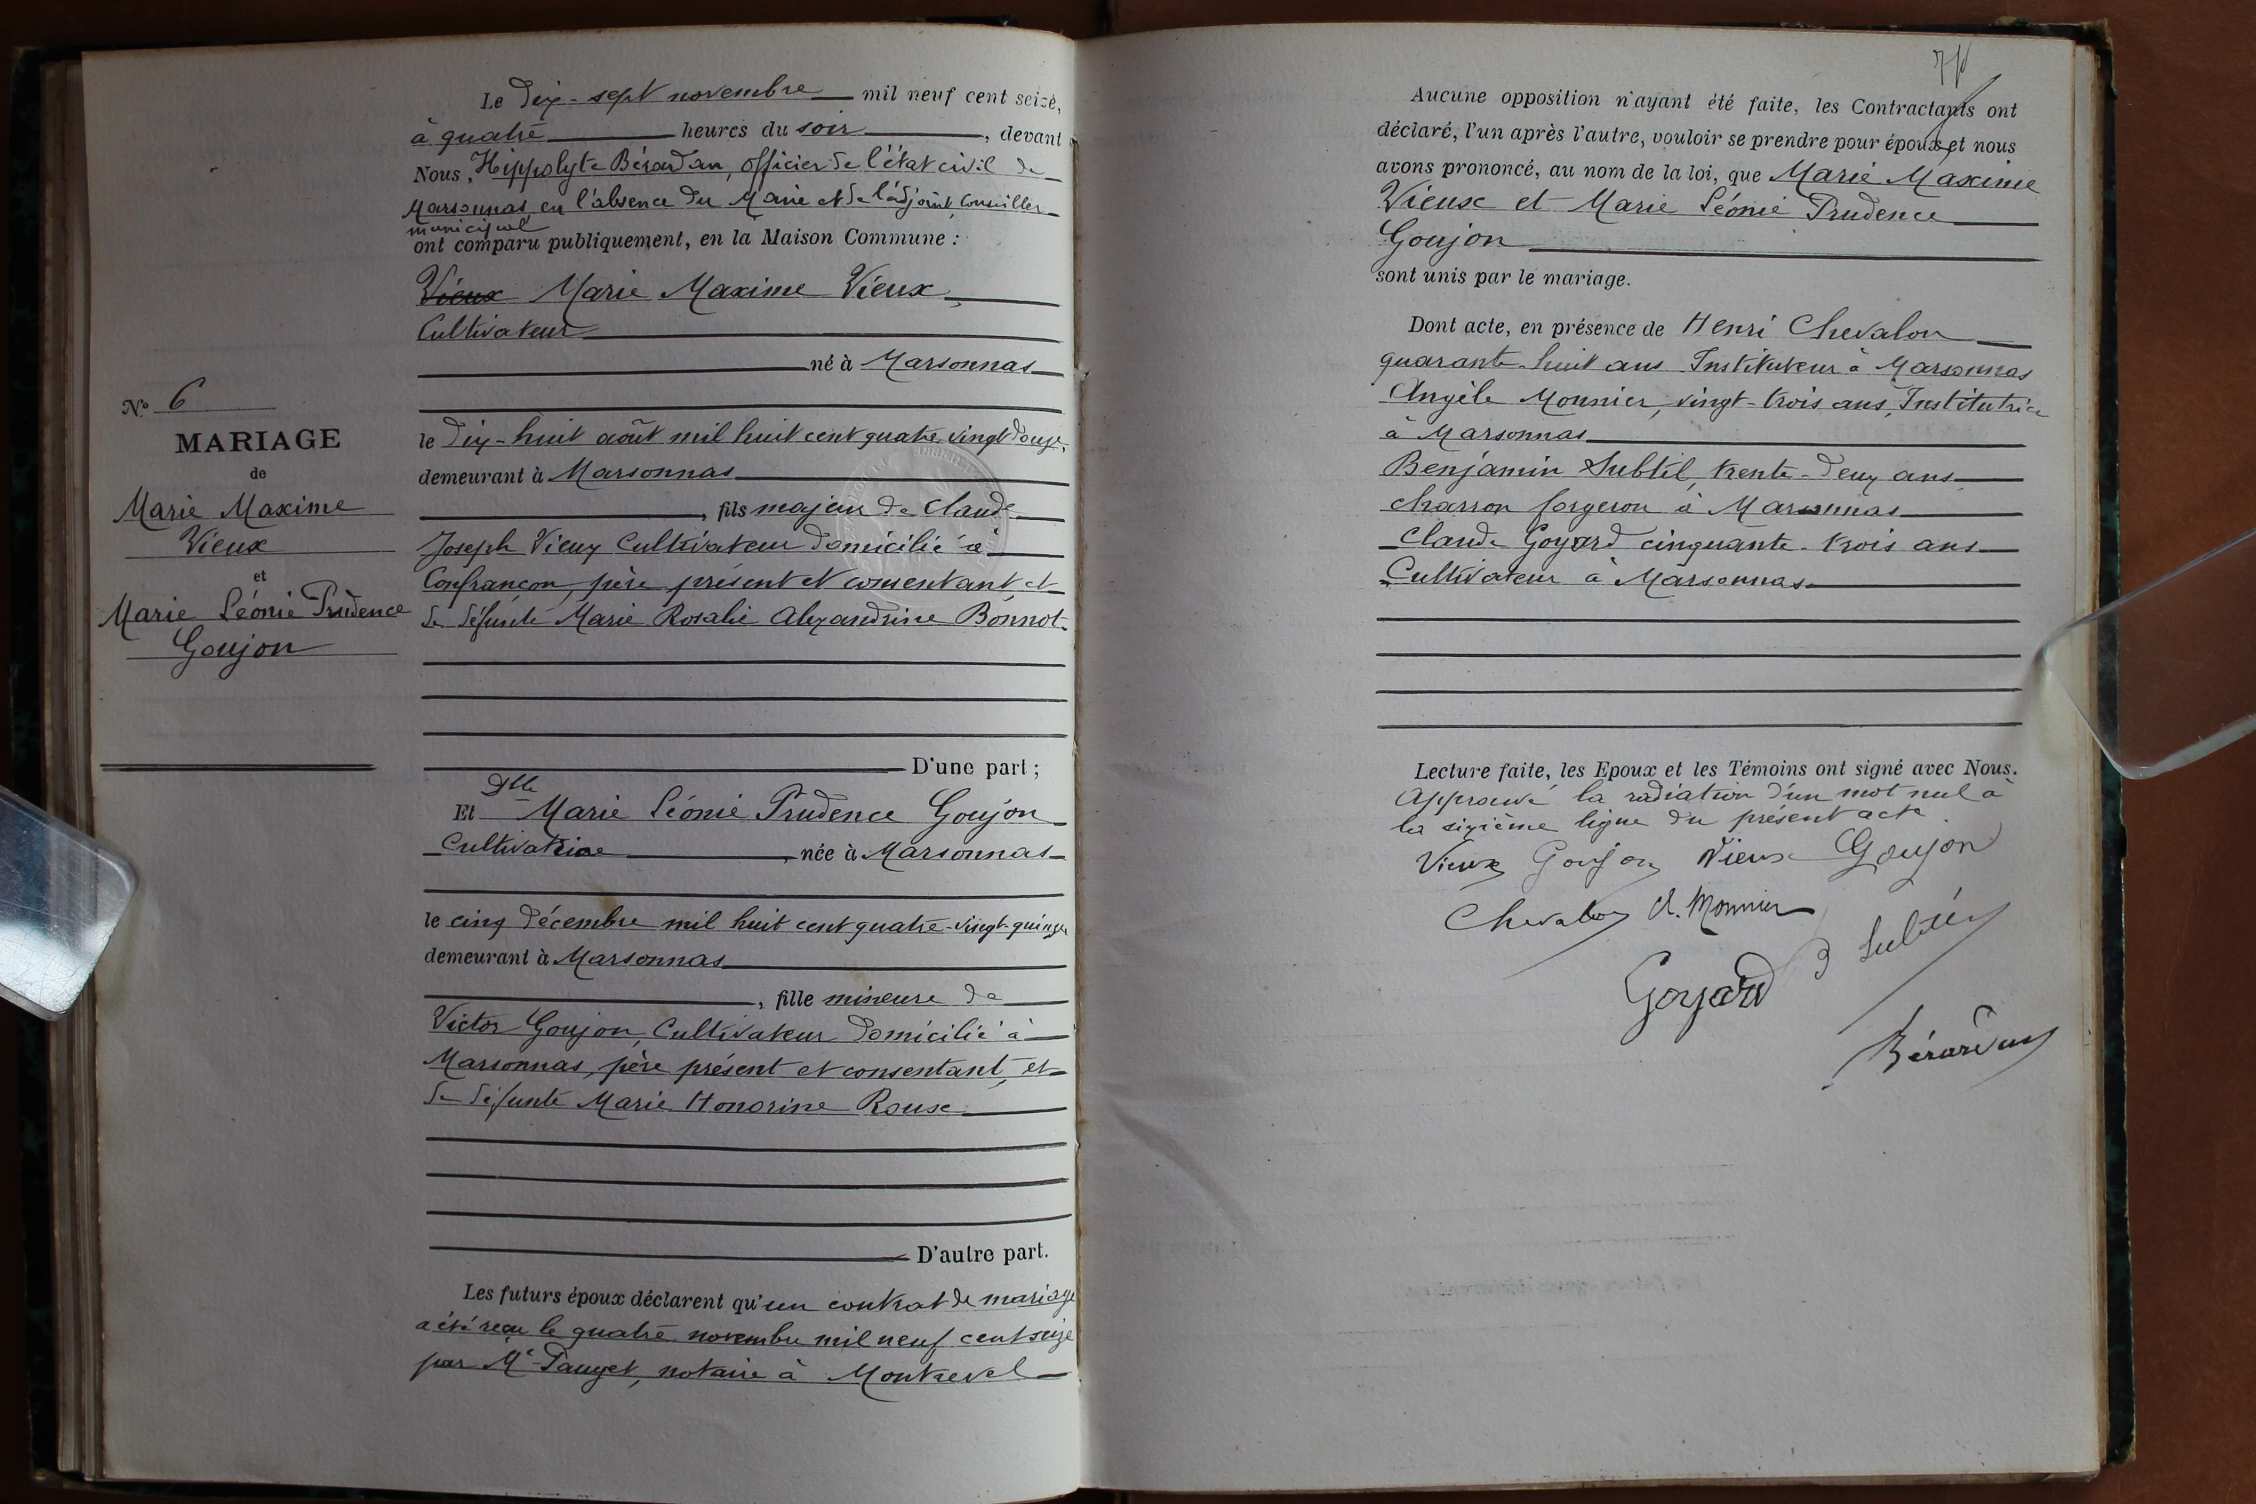 Le dix-sept novembre mil neuf cent seize,
à quatre heures du soir, devant
Nous, Hippolyte Bérardan, officier de l'état civil de
Marsonnas en l'absence du Maire et de l'adjoint, Conseiller
municipal
ont comparu publiquement, en la Maison Commune :
Vieux Marie Maxime Vieux,
Cultivateur
né à Marsonnas
le dix-huit août mil huit cent quatre-vingt douze,
demeurant à Marsonnas
, fils majeur de Claude
Joseph Vieux Cultivateur domicilié à
Confrançon, père présent et consentant, et
de défunte Marie Rosalie Alexandrine Bonnot
D'une part ;
Dlle
Et Marie Léonie Prudence Goujon
Cultivatrice, née à Marsonnas
le cinq décembre mil huit cent quatre-vingt-quinze
demeurant à Marsonnas
, fille mineure de
Victor Goujon, Cultivateur domicilié à
Marsonnas, père présent et consentant, et
de défunte Marie Honorine Roux
D'autre part.
Les futurs époux déclarent qu'un contrat de mariage
a été reçu le quatre novembre mil neuf cent seize
par Me Pauget, notaire à Montrevel
No 6
MARIAGE
de
Marie Maxime
Vieux
et
Marie Léonie Prudence
Goujon
Aucune opposition n'ayant été faite, les Contractants ont
déclaré, l'un après l'autre, vouloir se prendre pour époux, et nous
avons prononcé, au nom de la loi, que Marie Maxime
Vieux et Marie Léonie Prudence
Goujon
sont unis par le mariage.
Dont acte, en présence de Henri Chevalon
quarante-huit ans Instituteur à Marsonnas
Angèle Monnier, vingt-trois ans, Institutrice
à Marsonnas
Benjamin Subtil, trente-deux ans
charron forgeron à Marsonnas
Claude Goyard cinquante-trois ans
Cultivateur à Marsonnas
Lecture faite, les Epoux et les Témoins ont signé avec Nous.
Approuvé la radiation d'un mot nul à
la sixième ligne du présent acte
Vieux Goujon Vieux Goujon
Chevalon A. Monnier
Goyard Subtil
Bérardan